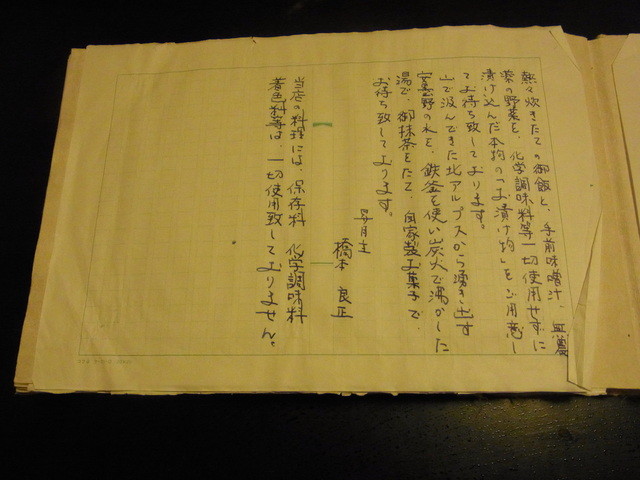 熱々炊きたての御飯と、手前味噌汁、無農
薬の野菜を、化学調味料等一切使用せずに
漬け込んだ本物の「お漬け物」をご用意し
てお待ち致しております。
山で汲んできた北アルプスから湧き出す
安曇野の水を、鉄釜を使い炭火で沸かした
湯で、御抹茶をたて、自家製お菓子で、
お待ち致しております。
橋本 良正
当店の料理には、保存料 化学調味料
着色料等は、一切使用致しておりません。